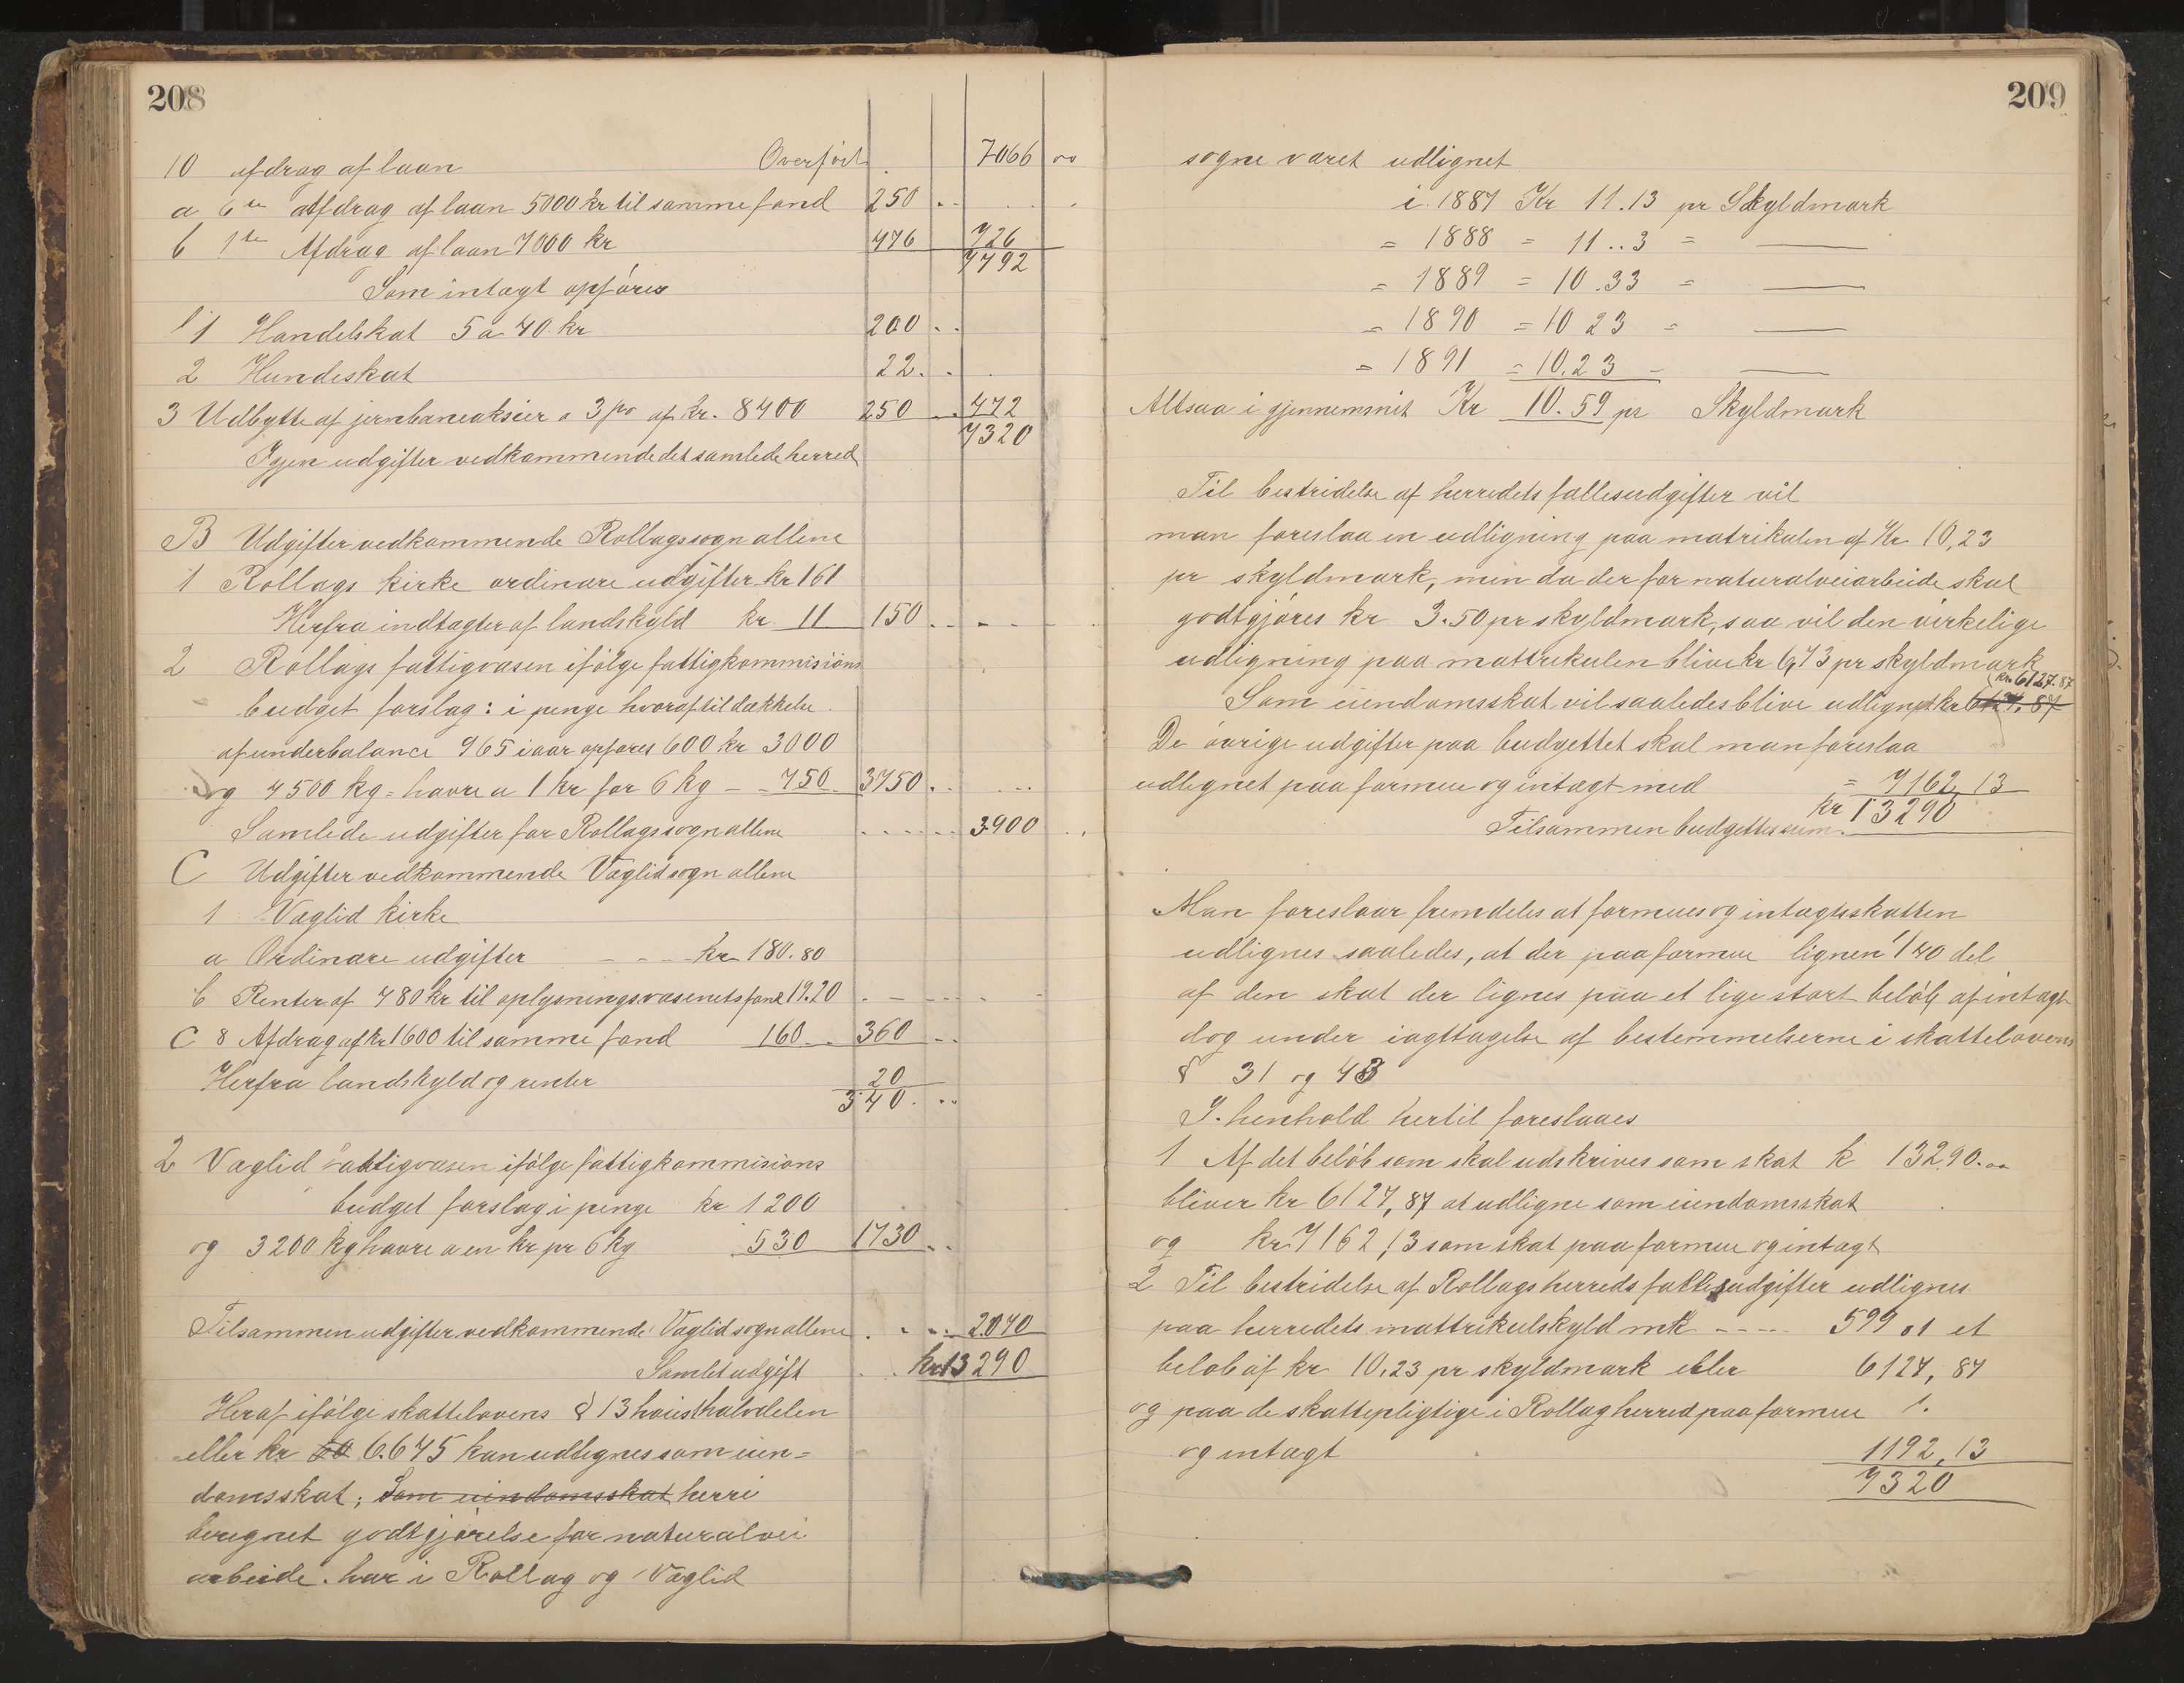 208
10 afdrag af laan Overført 7066 00
a 6te Afdrag af laan 5000 kr til samme fond 250
b 1te Afdrag af laan 7000 kr 476 726
7792
Som intægt opføres
1 Handelskat 5 a 40 kr 200
2 Hundeskat 22
3 Udbytte af jernbaneaksier a 3 pro af kr. 8400 250 472
7320
Igjen udgifter vedkommende det samlede herred
B Udgifter vedkommende Rollagssogn allene
1 Rollags kirke ordinære udgifter kr 161
Herfra indtægter af landskyld kr 11 150
2 Rollags fattigvæsen ifølge fattigkommisions
budget forslag: i penge hvoraf til dækkelse
af underbalance 965 i aar opføres 600 kr 3000
og 4500 kg = havre a 1 kr for 6 kg - 750 3750
Samlede udgifter for Rollagssogn allene 3900
C Udgifter vedkommende Væglid sogn allene
1 Væglid kirke
a Ordinære udgifter - - - kr 180.80
b Renter af 480 kr til oplysningsvæsenets fond 19.20
C 8 Afdrag af kr 1600 til samme fond 160 360
Herfra landskyld og renter 20
340
2 Væglid fattigvæsen ifølge fattigkommisions
budget forslag i penge kr 1200
og 3200 kg havre a en kr pr 6 kg 530 1730
Tilsammen udgifter vedkommende Væglid sogn allene 2040
Samlet udgift kr 13290
Heraf ifølge skattelovens § 13 høiest halvdelen
eller kr 6.645 kan udlegnes som eien=
domsskat; Som eiendomsskat herri
beregnet godtgjørelse for naturalvei
arbeide. har i Rollag og Væglid
209
sogne været udlignet
i 1887 Kr 11.13 pr Skyldmark
= 1888 = 11..3 =
= 1889 = 10.33 =
= 1890 = 10 23 =
= 1891 = 10.23 -
Altsaa i gjennemsnit Kr 10.59 pr Skyldmark
Til bestridelse af herredets fællesudgifter vil
man foreslaa en udligning paa matrikulen af Kr 10,23
pr skyldmark, men da der for naturalveiarbeide skal
godtgjøres kr 3.50 pr skyldmark, saa vil den virkelige
udligning paa mattrikulen blive kr 6,73 pr skyldmark
kr 6127.87
Som eiendomsskat vil saaledes blive udlignet kr 6127,87
De øvrige udgifter paa budgettet skal man foreslaa
udlignet paa formue og intægt med = 7162 13
Tilsammen budgettes sum kr 13290
Man foreslaar fremdeles at formues og intægtsskatten
udlignes saaledes, at der paa formue lignen 1/40 del
af den skat der lignes paa et lige stort beløb af intægt
dog under iagttagelse af bestemmelserne i skattelovens
§ 31 og 43
I henhold hertil foreslaaes
1 Af det beløb som skal udskrives som skat k 13290.00
bliver kr 6127,87 at udligne som eiendomsskat
og kr 7162,13 som skat paa formue og intægt
2 Til bestridelse af Rollags herreds fællesudgifter udlignes
paa herredets mattrikulskyld mk - - - - 599 01 et
beløb af kr 10.23 pr skyldmark eller 6127,87
og paa de skattepligtige i Rollag herred paa formue
og intægt 1192,13
7320